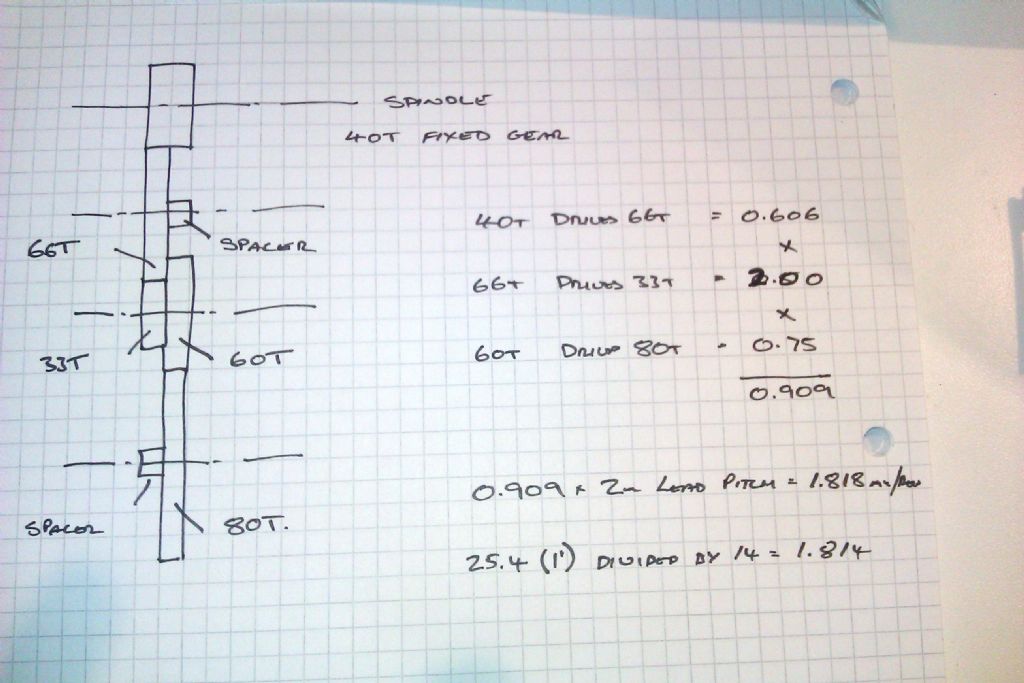 SPINDLE
40T FIXED GEAR
40T DRIVES 66T = 0.606
x
SPACER
66T
66T DRIVES 33T = 2.00
x
60T DRIVES 80T = 0.75
33T
60T
0.909
0.909 x 2m LEAD PITCH = 1.818 mm/REV
SPACER
80T.
25.4 (1") DIVIDED BY 14 = 1.814